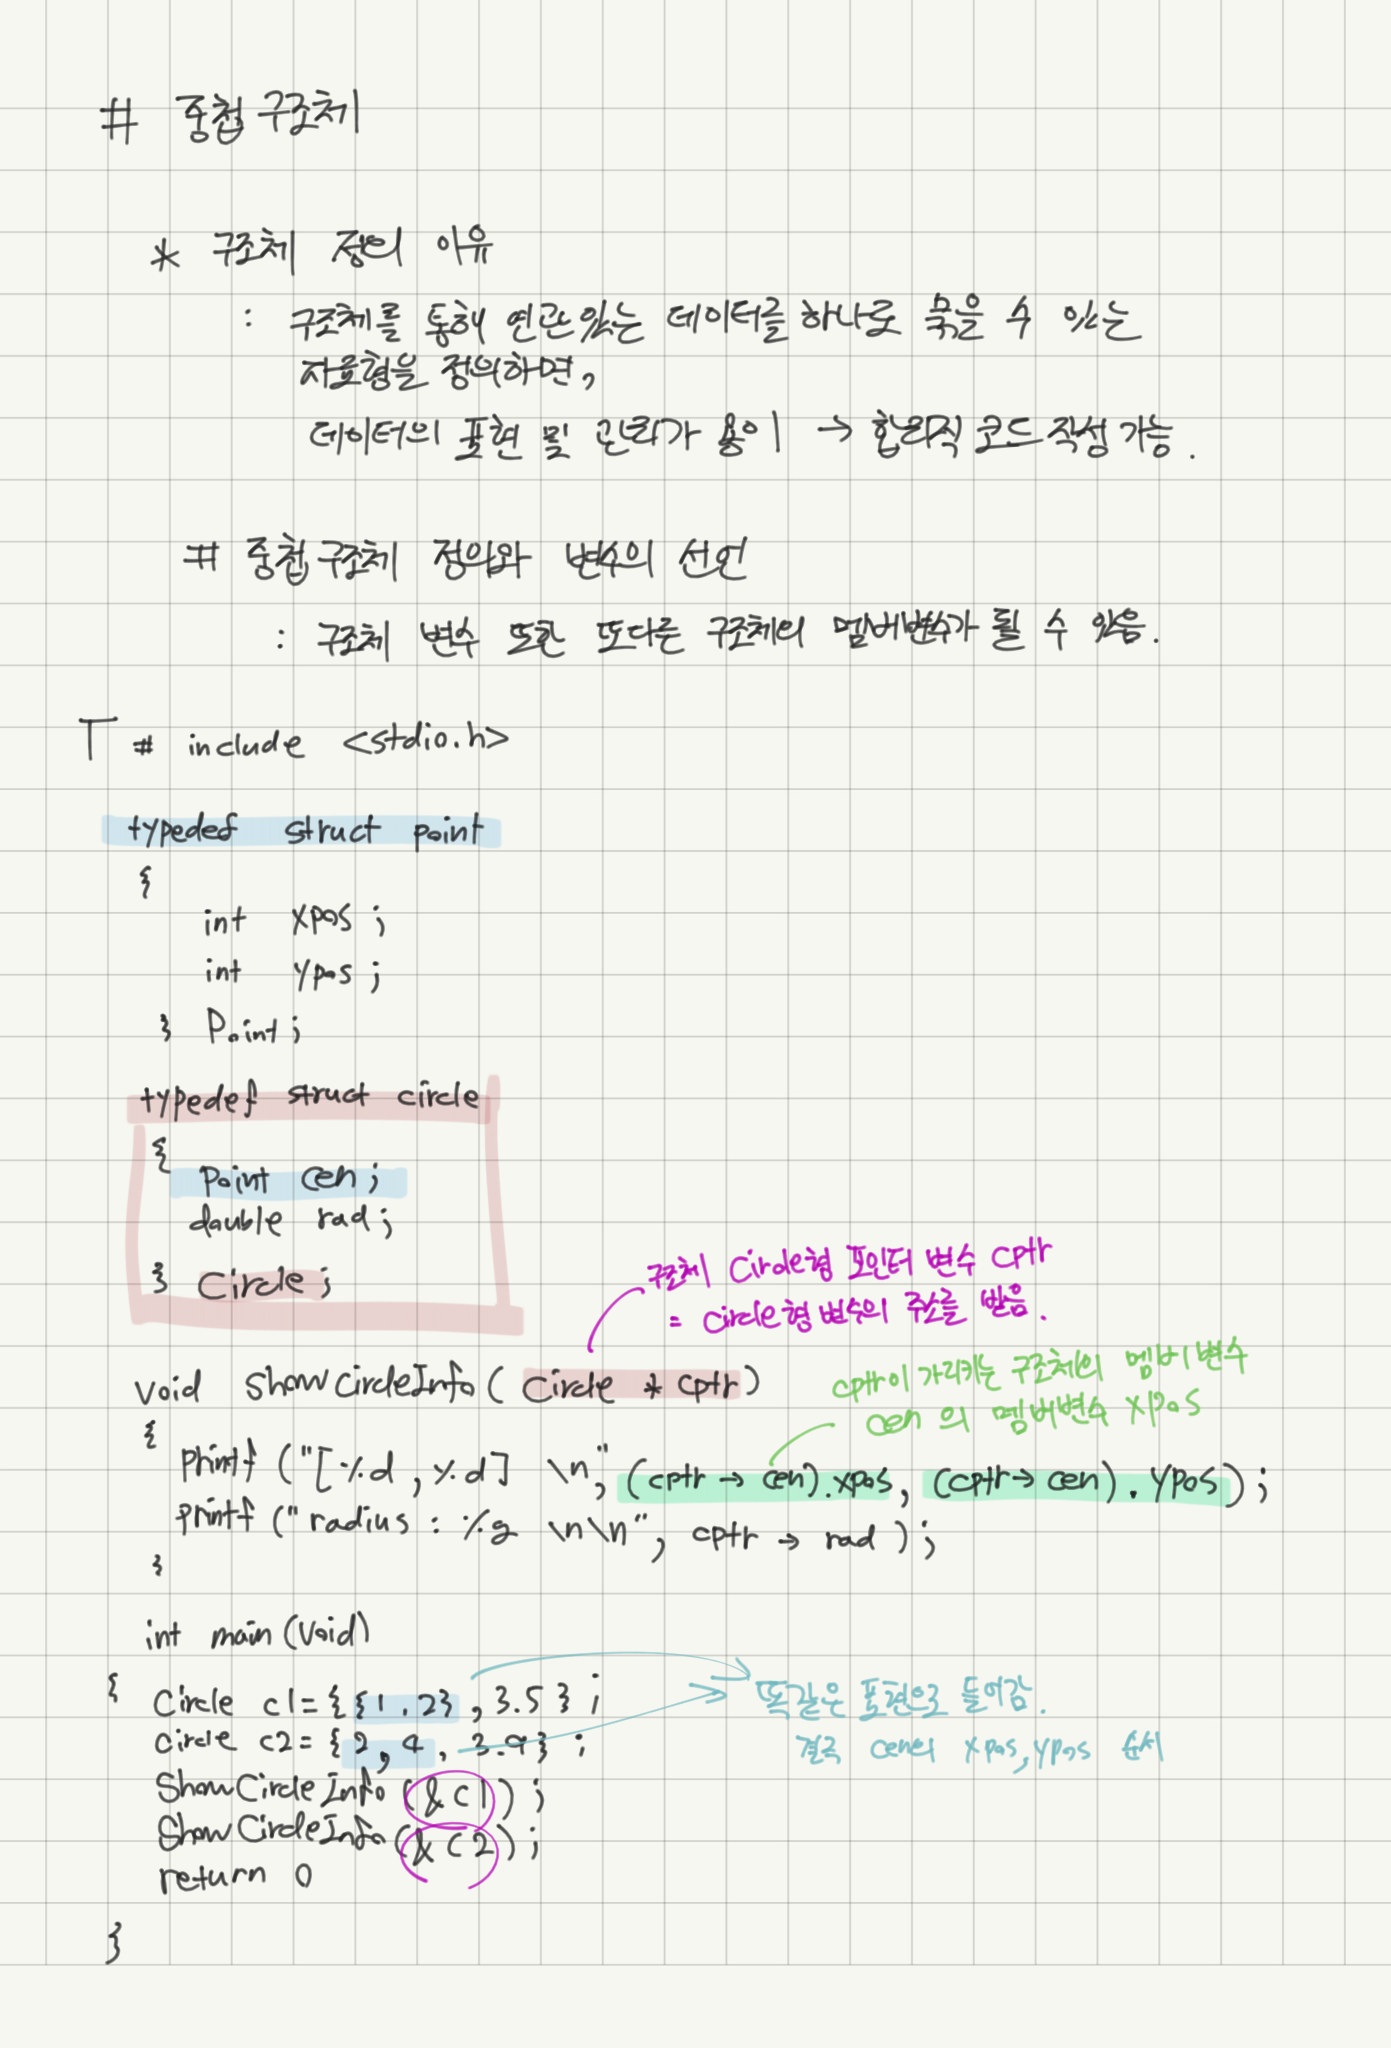 # 중첩 구조체
* 구조체 정의 이유
: 구조체를 통해 연관있는 데이터를 하나로 묶을 수 있는
자료형을 정의하면,
데이터의 표현 및 관리가 용이 → 합리적 코드 작성 가능.
# 중첩구조체 정의와 변수의 선언
: 구조체 변수 또한 또다른 구조체의 멤버변수가 될 수 있음.
# include <stdio.h>
typedef struct point
{
int xpos ;
int ypos ;
} Point ;
typedef struct circle
{
Point cen ;
double rad ;
} Circle ;
구조체 Circle형 포인터 변수 cptr
= circle형 변수의 주소를 받음.
void showCircleInfo ( Circle * cptr )
cptr이 가리키는 구조체의 멤버변수
cen 의 멤버변수 xpos
{
printf ("[%d , %d] \n", (cptr → cen).xpos, (cptr → cen). ypos ) ;
printf ("radius : %g \n\n", cptr → rad ) ;
}
int main (void)
{
Circle c1 = { {1. 2} , 3.5 } ;
circle c2 = { 2, 4 , 3.9} ;
똑같은 표현으로 들어감.
결국 cen의 xpos, ypos 순서
ShowCircleInfo (&c1) ;
ShowCircleInfo (&c2) ;
return 0
}